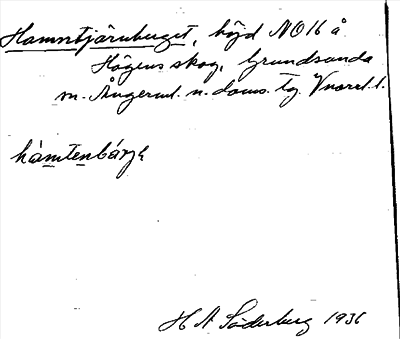 Hamntjärnberget, höjd NO16 å
Högens skog, Grundsunda
m. Ångerml. n. doms. tg. Vnorrl. l.
hàmtenbárjɛ
H A Söderberg 1936